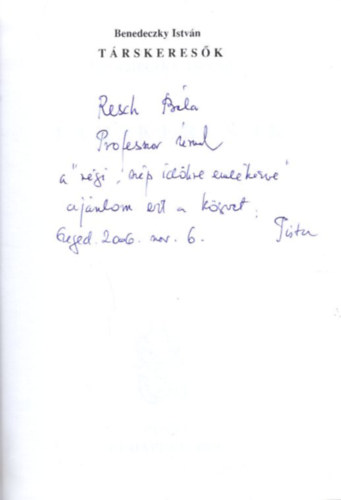 Benedeczky István
TÁRSKERESŐK
Resch Béla
Professzor úrnak
a "régi, szép időkre emlékezve"
ajánlom ezt a könyvet.
Szeged. 2006. nov. 6. Pista